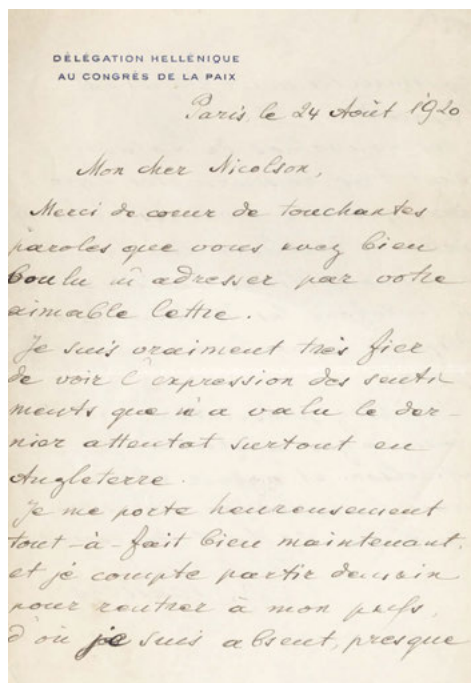 DÉLÉGATION HELLÉNIQUE
AU CONGRÈS DE LA PAIX
Paris, le 24 Août 1920
Mon cher Nicolson,
Merci de coeur de touchantes
paroles que vous avez bien
voulu m'adresser par votre
aimable lettre.
Je suis vraiment très fier
de voir l'expression des senti
ments que m'a valu le der-
nier attentat surtout en
Angleterre.
Je me porte heureusement
tout-à-fait bien maintenant.
et je compte partir demain
pour rentrer à mon pays,
d'où je suis absent, presque